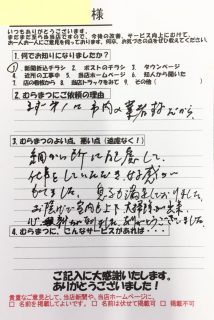 様
いつもありがとうございます。
まだまだ至らぬ当店ですので、今後の改善、サービス向上にむけて、
お一人お一人にご意見を伺っております。何卒、お気づきの点をぜひ教えてください。
1. 何でお知りになりましたか?
1 新聞折込チラシ 2 ポストのチラシ 3 タウンページ
4 近所の工事中 5 当店ホームページ 6 知人から聞いた
7 店の看板から 8 当店トラックをみて 9 その他( )
2. むらまつにご依頼の理由
市内の業者だから
3. むらまつのよい点、悪い点(遠慮なく!)
細かい所に配慮して
仕事をしていただき
ました。
ありがとうございました。
4. むらまつに、こんなサービスがあれば・・・
ご記入に大感謝いたします。
ありがとうございます!
貴重なご意見として、当店新聞や、当店ホームページに、
□ 名前を掲載してよいです。 □ 名前は伏せて掲載可 □ 掲載不可